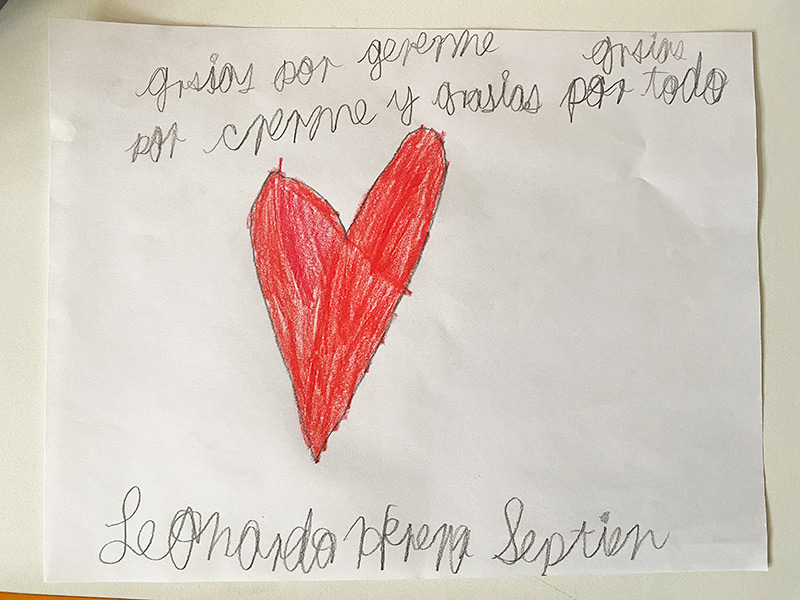 grsias por gererme grsias
por crerme y grasias por todo
Leonardo Herera Septien